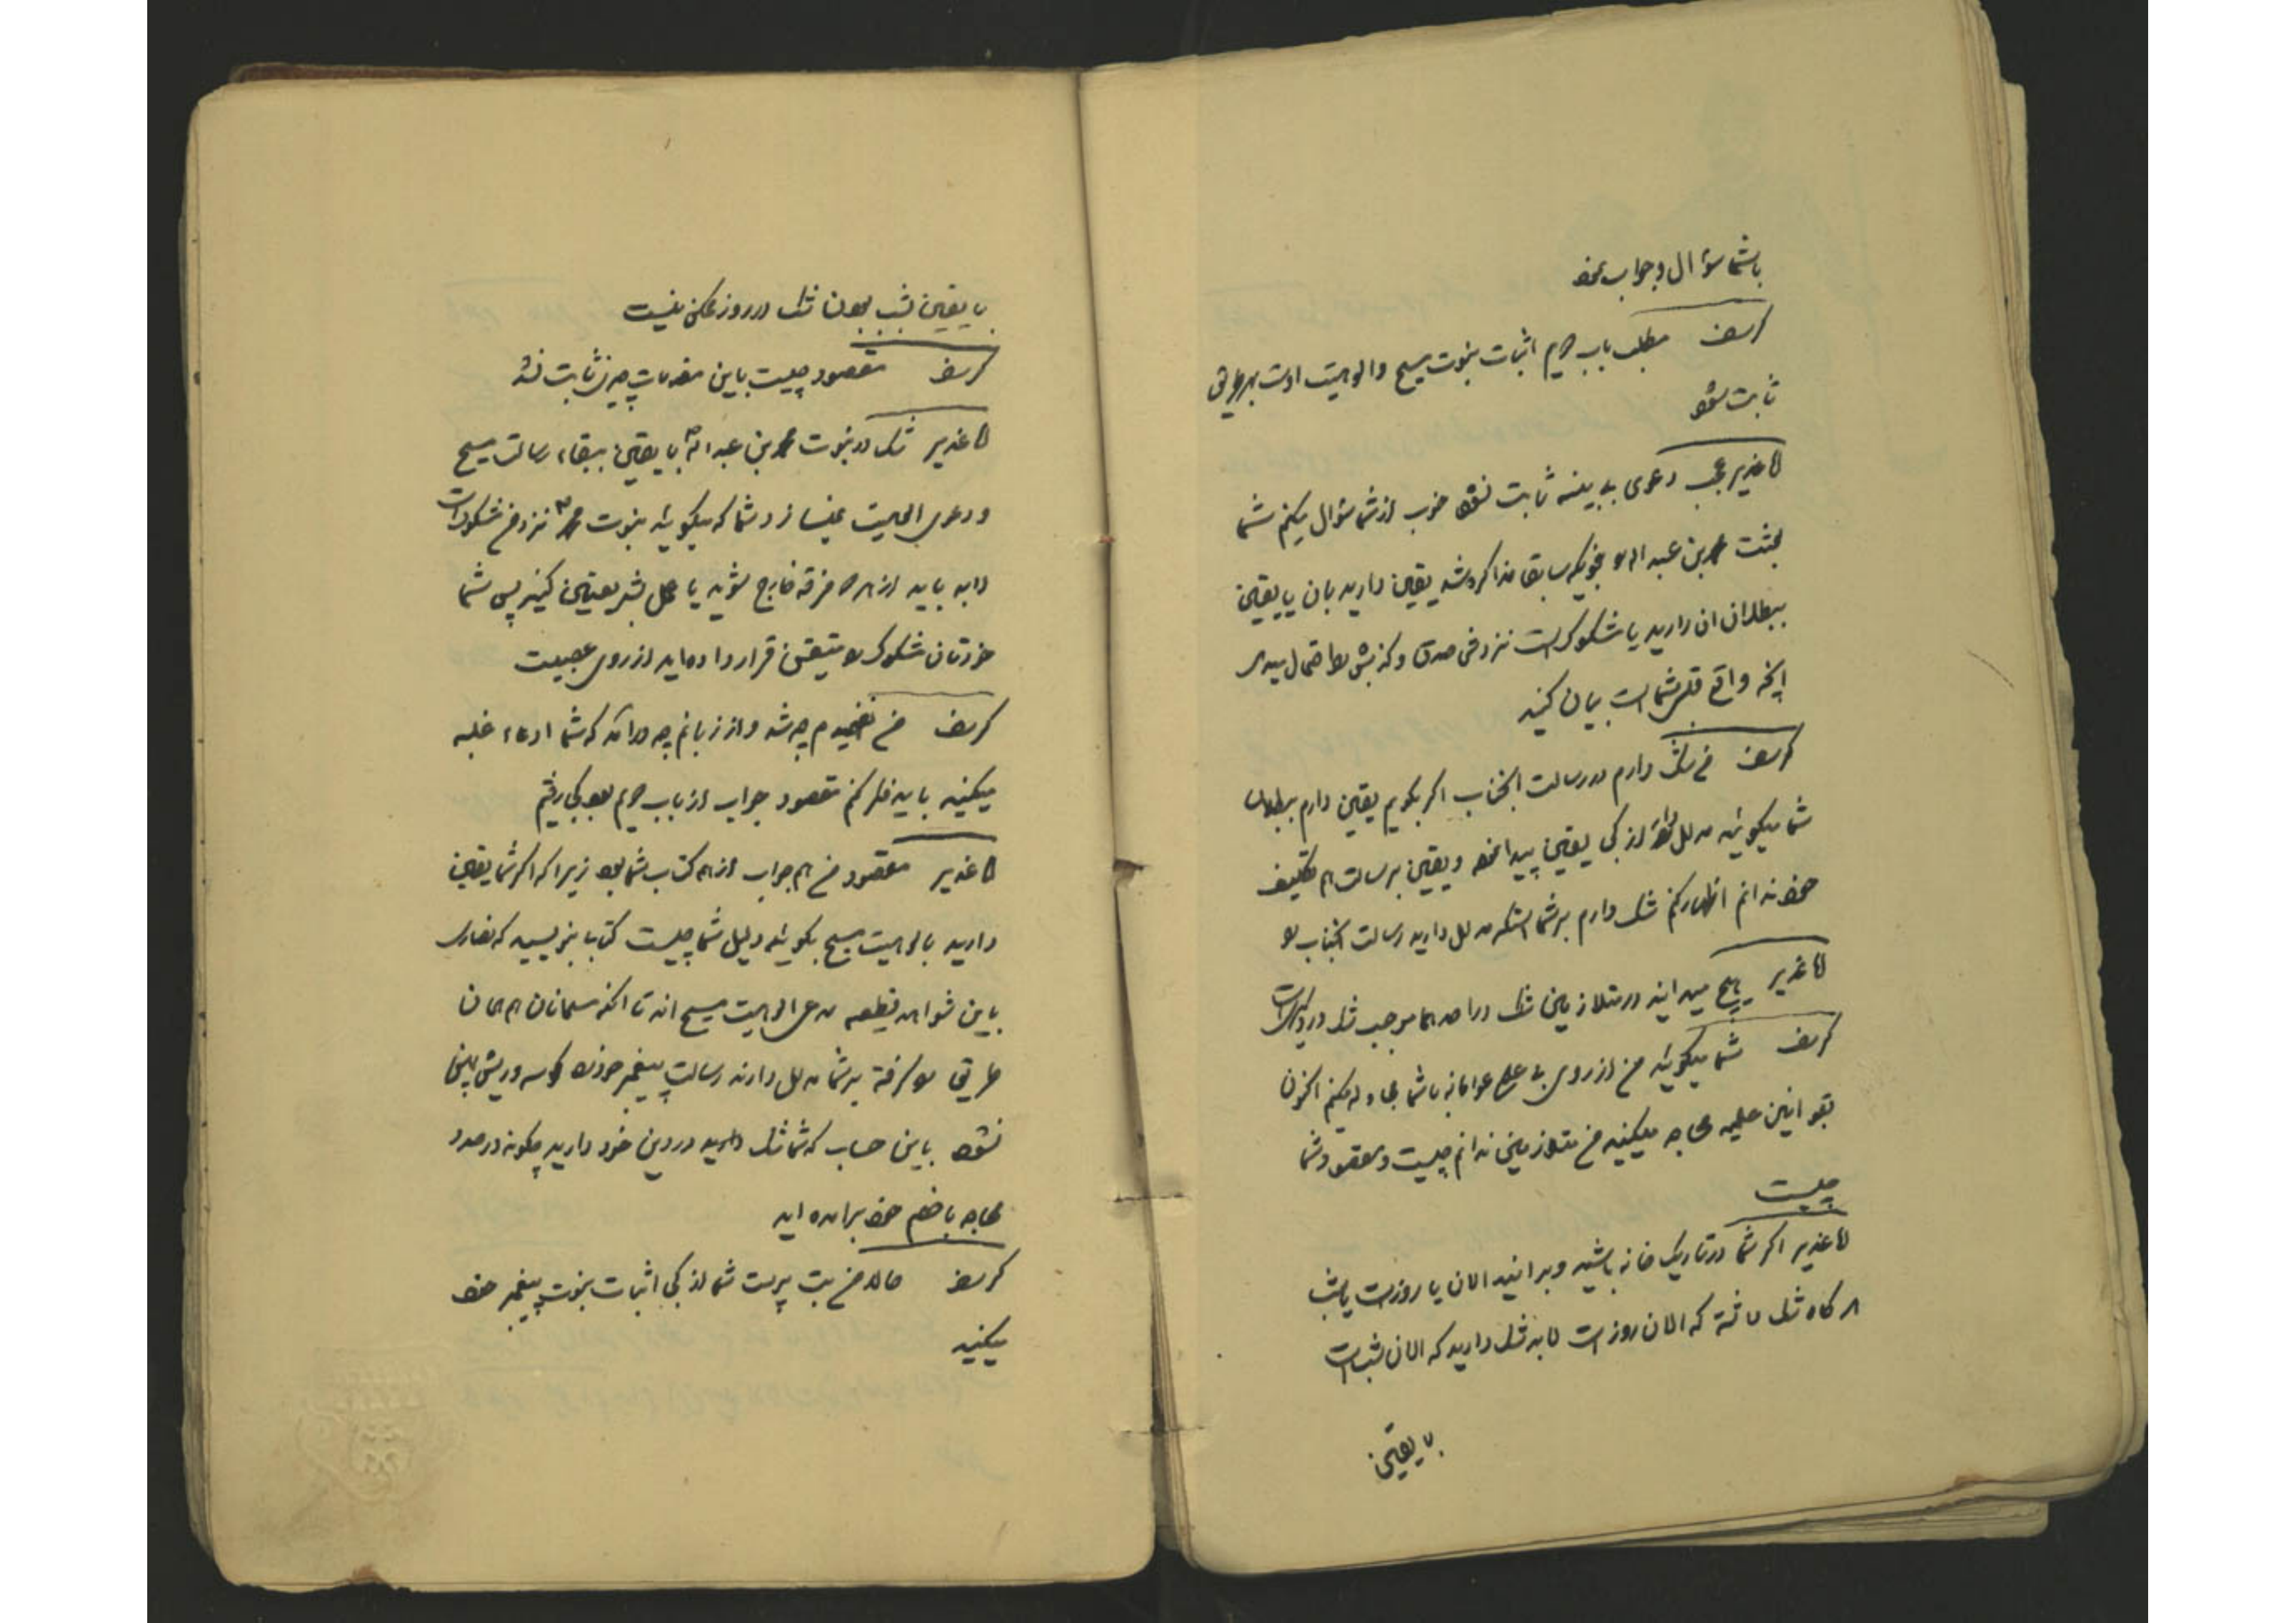 با شما سؤال و جواب نمود
کرسف مطلب باب دویم اثبات نبوت مسیح و الوهیت اوست بهر طریقی
ثابت شود
کاغذیر عجب دعوی بی بینه ثابت نشود خوب از شما سؤال میکنم شما
بعثت محمد بن عبد الله را بنحویکه سابقا مذاکره شد یقین دارید بان یا یقین
ببطلان ان دارید یا مشکوک است نزد من صدق و کذبش را احتمال میدهید
انچه واقع قلب شما است بیان کنید
کرسف من شک دارم در رسالت انجناب اکر بکویم یقین دارم ببطلان
شما میکوئید مدلل کن از کجا یقین پیدا نموده و یقین برسالت هم تکلیف
خود ندانم اظهار کنم شک دارم بر شما است که مدلل دارید رسالت انجناب را
کاغذیر هیچ میدانید در متلازمین شک در احدهما موجب شک در دیگر است
کرسف شما میکوئید من از روی بی علمی عوامانه با شما مجادله میکنم اکنون
بقوانین علمیه محاجه میکنید من متلازمین ندانم چیست و مقصود شما
چیست
کاغذیر اکر شما در تاریک خانه باشید و بدانید الان یا روز است یا شب
هر کاه شک داشته که الان روز است لابد شک دارید که الان شب است
با یقین
با یقین شب بودن شک در روز ممکن نیست
کرسف مقصود چیست باین مقدمات چیزی ثابت نشد
کاغذیر شک در نبوت محمد بن عبد الله با یقین ببقاء رسالت مسیح
و دعوی الوهیت نمیسازد شما که میکوئید نبوت محمد نزد من مشکوک است
لابد باید از هر دو فرقه خارج شوید یا عمل بشریعتین کنید پس شما
خودتان مشکوک را متیقن قرار داده اید از روی عصبیت
کرسف من نفهمیدم چه شد و از زبانم چه درامد که شما ادعاء غلبه
میکنید باید فکر کنم مقصود جواب از باب دویم بود کجا رفتم
کاغذیر مقصود من هم جواب از همه کتاب شما بود زیرا که اکر شما یقین
دارید بالوهیت مسیح بکوئید دلیل شما چیست کتابا بنویسید که نصاری
باین شواهد قطعیه مدعی الوهیت مسیح اند تا انکه مسلمانان هم همان
طریق را کرفته بر شما مدلل دارند رسالت پیغمبر خود را کوسه و ریش پهن
نشود باین حساب که شما شک دارید در دین خود دارید چکونه در صدد
محاجه با خصم خود برامده اید
کرسف حالا من بت پرست شما از کجا اثبات نبوت پیغمبر خود
میکنید